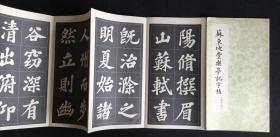 蘇東坡豐樂亭記字帖
陽脩撰眉
山蘇軾書
既治滁之
明夏始諸
人州而
然立則幽
谷窈深有
清出俯仰